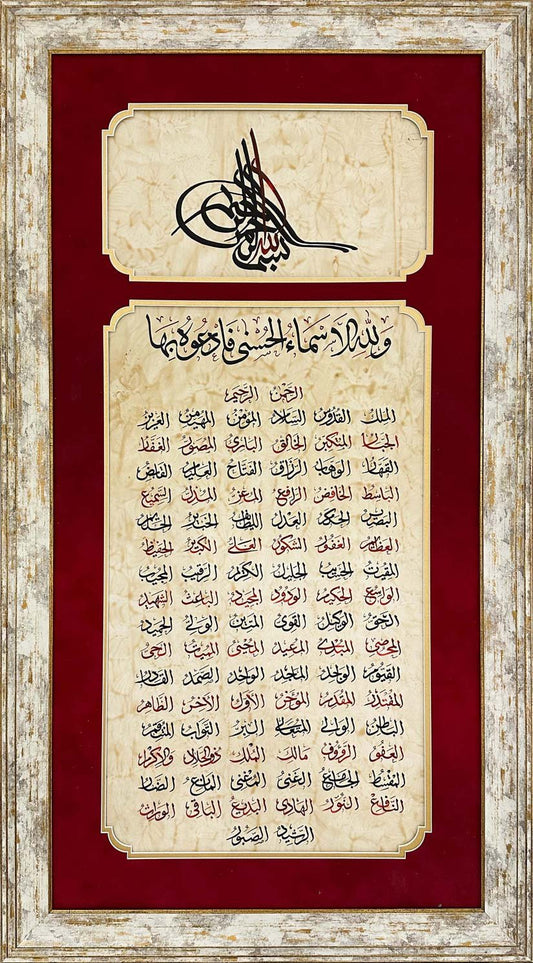 بسم الله الرحمن الرحيم
ولله الاسماء الحسنى فادعوه بها
الرحمن الرحيم
الملك القدوس السلام المؤمن المهيمن العزيز
الجبار المتكبر الخالق البارئ المصور الغفار
القهار الوهاب الرزاق الفتاح العليم القابض
الباسط الخافض الرافع المعز المذل السميع
البصير الحكم العدل اللطيف الخبير الحليم
العظيم الغفور الشكور العلي الكبير الحفيظ
المقيت الحسيب الجليل الكريم الرقيب المجيب
الواسع الحكيم الودود المجيد الباعث الشهيد
الحق الوكيل القوي المتين الولي الحميد
المحصي المبدئ المعيد المحيي المميت الحي
القيوم الواجد الماجد الواحد الصمد القادر
المقتدر المقدم المؤخر الأول الآخر الظاهر
الباطن الوالي المتعالي البر التواب المنتقم
العفو الرؤوف مالك الملك ذو الجلال والاكرام
المقسط الجامع الغني المغني المانع الضار
النافع النور الهادي البديع الباقي الوارث
الرشيد الصبور